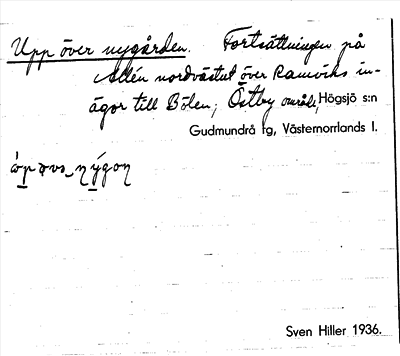 Upp över nygården. Fortsättningen på
Allén nordvästut över Ramviks in-
ägor till Bölen; Östby område, Högsjö s:n
Gudmundrå tg, Västernorrlands l.
Sven Hiller 1936.